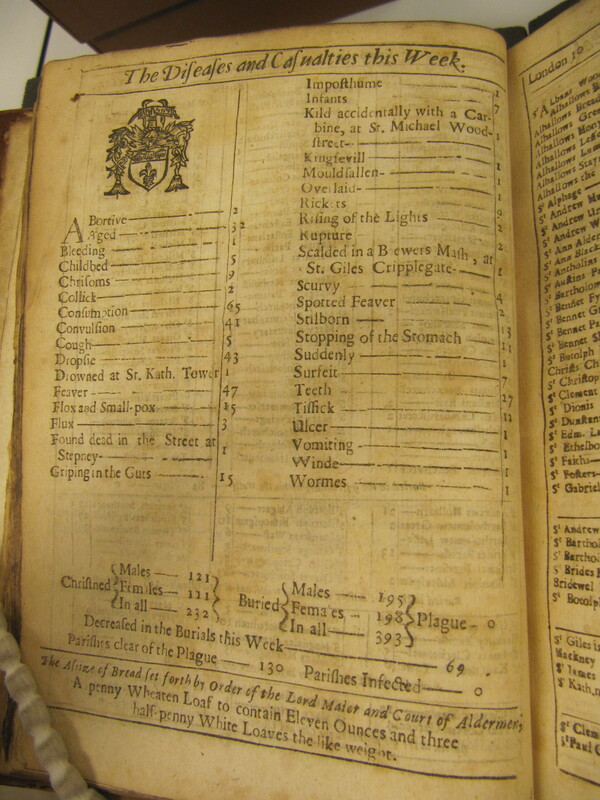 The Diſeaſes and Caſualties this Week.
ABortive 2
Aged 32
Bleeding 1
Childbed 5
Chriſoms 9
Collick 2
Conſumption 65
Convulſion 41
Cough 5
Dropſie 43
Drowned at St. Kath. Tower 1
Feaver 47
Flox and Small-pox 15
Flux 3
Found dead in the Street at
Stepney 1
Griping in the Guts 15
Impoſthume 1
Infants 7
Kild accidentally with a Car-
bine, at St. Michael Wood-
ſtreet 1
Kingſevill 1
Mouldfallen 1
Overlaid 1
Rickets 9
Riſing of the Lights 2
Rupture 2
Scalded in a Brewers Maſh, at
St. Giles Cripplegate 1
Scurvy 4
Spotted Feaver 2
Stilborn 13
Stopping of the Stomach 11
Suddenly 1
Surfeit 7
Teeth 27
Tiſſick 11
Ulcer 1
Vomiting 1
Winde 1
Wormes 1
Chriſtned
Males 121
Females 111
In all 232
Buried
Males 195
Females 198
In all 393
Plague 0
Decreaſed in the Burials this Week 69
Pariſhes clear of the Plague 130 Pariſhes Infected 0
The Aſſize of Bread ſet forth by Order of the Lord Maior and Court of Aldermen,
A penny Wheaten Loaf to contain Eleven Ounces and three
half-penny White Loaves the like weight.
London
Sᵗ Albans Wood
Alhallows
Alhallows Bre
Alhallows Gre
Alhallows
Alhallows
Alhallows Lum
Alhallows Stay
Alhallows the
Sᵗ Alphage
Sᵗ Andrew
Sᵗ Andrew
Sᵗ Andrew W
Sᵗ Ann Alder
Sᵗ Ann Black
Sᵗ Antholins
Sᵗ Auſtins
Sᵗ Bartholom
Sᵗ Bennet Fy
Sᵗ Bennet Gr
Sᵗ Bennet Pa
Sᵗ Bennet Sh
Sᵗ Botolph
Chriſts Ch
Sᵗ Chriſtop
Sᵗ Clement
Sᵗ Dionis
Sᵗ Dunſtan
Sᵗ Edm. L
Sᵗ Ethelbo
Sᵗ Faiths
Sᵗ Foſters
Sᵗ Gabriel
Sᵗ Andrew
Sᵗ Bartho
Sᵗ Bartho
Sᵗ Brides
Bridewel
Sᵗ Botolp
Sᵗ Giles i
Hackney
Sᵗ James
Sᵗ Kath.
Sᵗ Clem
Sᵗ Paul C